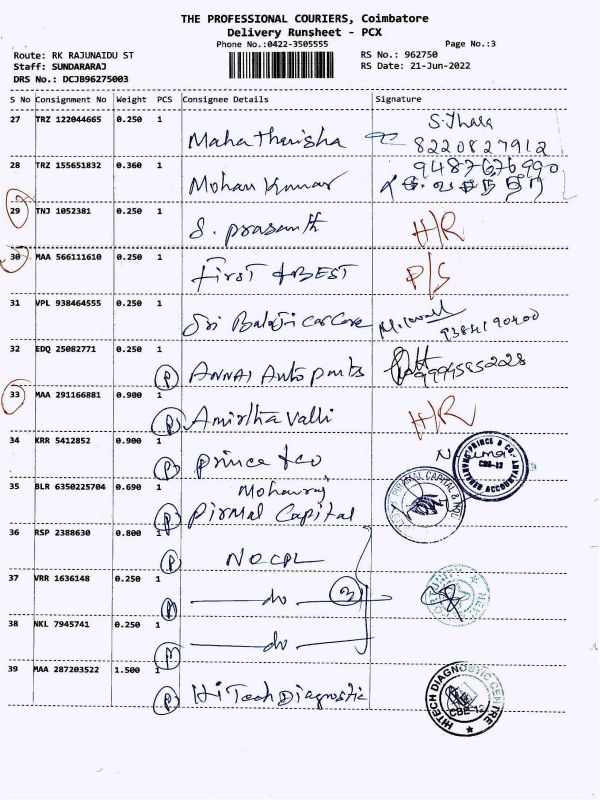 THE PROFESSIONAL COURIERS, Coimbatore
Delivery Runsheet - PCX
Phone No.:0422-3505555 Page No.:3
Route: RK RAJUNAIDU ST RS No.: 962750
Staff: SUNDARARAJ RS Date: 21-Jun-2022
DRS No.: DCJB96275003
S No Consignment No Weight PCS Consignee Details Signature
27 TRZ 122044665 0.250 1
Maha Tharisha S. Thala
8220827912
28 TRZ 155651832 0.360 1 9487676990
Mohan Kumar
29 TNJ 1052381 0.250 1
S. Prasanth H/R
30 MAA 566111610 0.250 1
First & BEST P/S
31 VPL 938464555 0.250 1
Sri Balaji Car Care 9384190400
32 EDQ 25082771 0.250 1
P ANNAI Auto parts 99945852228
33 MAA 291166881 0.900 1
P Amirtha valli H/R
34 KRR 5412852 0.900 1
P Prince & co
PRINCE & CO.
CBE-12
ACCOUNTANT
35 BLR 6350225704 0.690 1 Mohanraj
P Pirmal Capital
CAPITAL &
36 RSP 2388630 0.800 1
P NOCPL
37 VRR 1636148 0.250 1
P do 3
38 NKL 7945741 0.250 1
P do
39 MAA 287203522 1.500 1
P Hi Tech Diagnostic
HITECH DIAGNOSTIC CENTRE
CBE-12